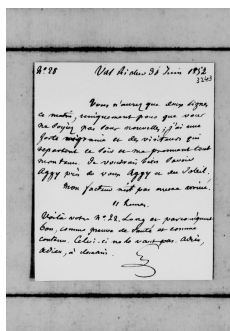 N° 28 Val Richer 30 Juin 1852
3243
Vous n'aurez que deux lignes
ce matin, uniquement pour que vous
ne soyez pas sans nouvelles; j'ai une
forte migraine et des visiteurs qui
repartent ce soir et me prennent tout
mon tems. Je voudrais bien savoir
Aggy près de vous. Aggy et du soleil.
Mon facteur n'est pas encore arrivé.
11 heures.
Voilà votre N° 22. Long et
bon, comme preuve de santé et comme
contenu. Celui-ci ne le vaut pas. Adieu,
adieu, à demain.